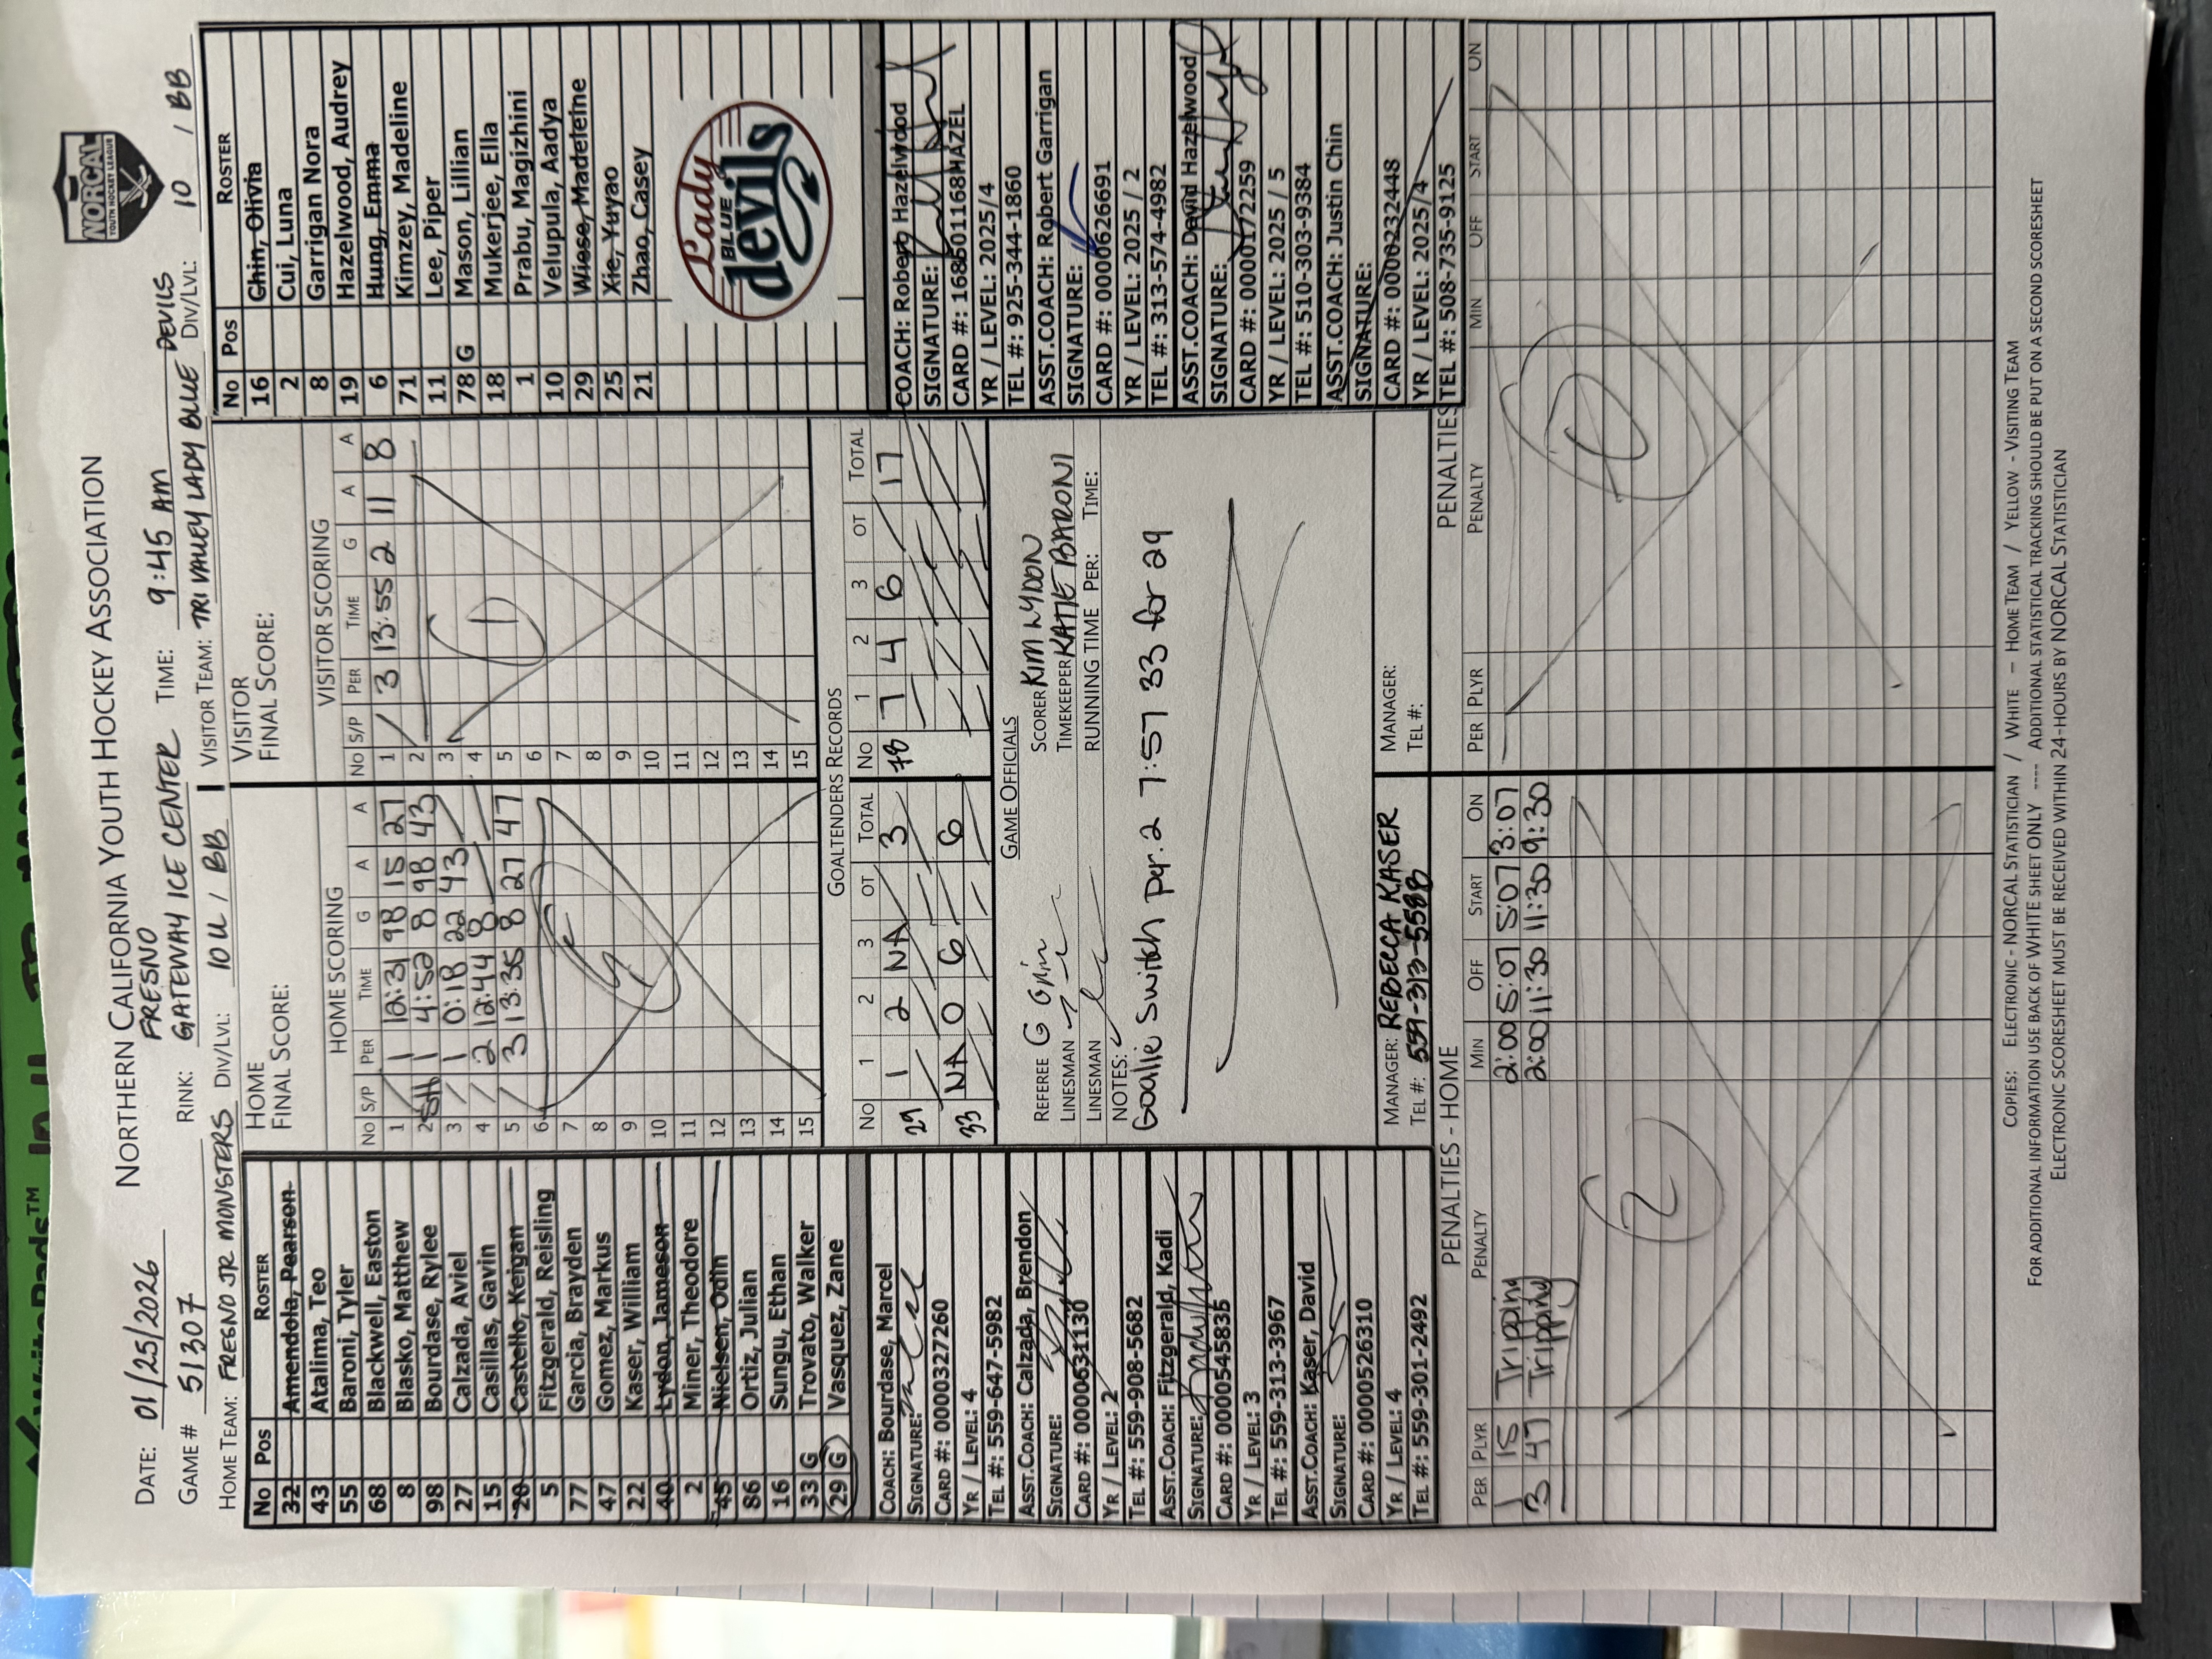 NORTHERN CALIFORNIA YOUTH HOCKEY ASSOCIATION
NORCAL
YOUTH HOCKEY LEAGUE
DATE: 01/25/2026
GAME # 51307
RINK: FRESNO GATEWAY ICE CENTER
TIME: 9:45 AM
HOME TEAM: FRESNO JR MONSTERS DIV/LVL: 10U / BB
VISITOR TEAM: TRI VALLEY LADY BLUE DEVILS DIV/LVL: 10 / BB
No Pos ROSTER
32 Amendola, Pearson
43 Atalima, Teo
55 Baroni, Tyler
68 Blackwell, Easton
8 Blasko, Matthew
98 Bourdase, Rylee
27 Calzada, Aviel
15 Casillas, Gavin
20 Castello, Keigan
5 Fitzgerald, Reisling
77 Garcia, Brayden
47 Gomez, Markus
22 Kaser, William
40 Lydon, Jameson
2 Miner, Theodore
45 Nielsen, Odin
86 Ortiz, Julian
16 Sungu, Ethan
33 G Trovato, Walker
29 G Vasquez, Zane
COACH: Bourdase, Marcel
SIGNATURE:
CARD #: 0000327260
YR / LEVEL: 4
TEL #: 559-647-5982
ASST.COACH: Calzada, Brendon
SIGNATURE:
CARD #: 0000631130
YR / LEVEL: 2
TEL #: 559-908-5682
ASST.COACH: Fitzgerald, Kadi
SIGNATURE:
CARD #: 0000545835
YR / LEVEL: 3
TEL #: 559-3113-3967
ASST.COACH: Kaser, David
SIGNATURE:
CARD #: 0000526310
YR / LEVEL: 4
TEL #: 559-301-2492
HOME
FINAL SCORE:
HOME SCORING
No S/P PER TIME G A A
1 / 1 12:31 98 15 27
2 SH 1 4:52 8 98 43
3 / 1 0:18 22 43 /
4 / 2 12:44 8 / /
5 / 3 13:36 8 27 47
6
7
8
9
10
11
12
13
14
15
VISITOR
FINAL SCORE:
VISITOR SCORING
No S/P PER TIME G A A
1 / 3 13:55 2 11 8
2
3
4
5
6
7
8
9
10
11
12
13
14
15
1
GOALTENDERS RECORDS
No 1 2 3 OT TOTAL
29 1 2 NA / 3
33 NA 0 6 / 6
No 1 2 3 OT TOTAL
78 7 4 6 / 17
GAME OFFICIALS
REFEREE
LINESMAN
LINESMAN
SCORER KIM LYDON
TIMEKEEPER KATIE BARONI
RUNNING TIME PER: TIME:
NOTES:
Goalie Switch per. 2 7:57 33 for 29
MANAGER: REBECCA KASER
TEL #: 559-313-5588
MANAGER:
TEL #:
No Pos ROSTER
16 Chin, Olivia
2 Cui, Luna
8 Garrigan Nora
19 Hazelwood, Audrey
6 Hung, Emma
71 Kimzey, Madeline
11 Lee, Piper
78 G Mason, Lillian
18 Mukerjee, Ella
1 Prabu, Magizhini
10 Velupula, Aadya
29 Wiese, Madeleine
25 Xie, Yuyao
21 Zhao, Casey
Lady
BLUE
devils
COACH: Robert Hazelwood
SIGNATURE:
CARD #: 1686501168HAZEL
YR / LEVEL: 2025/4
TEL #: 925-344-1860
ASST.COACH: Robert Garrigan
SIGNATURE:
CARD #: 0000626691
YR / LEVEL: 2025 / 2
TEL #: 313-574-4982
ASST.COACH: David Hazelwood
SIGNATURE:
CARD #: 0000172259
YR / LEVEL: 2025 / 5
TEL #: 510-303-9384
ASST.COACH: Justin Chin
SIGNATURE:
CARD #: 0000232448
YR / LEVEL: 2025/4
TEL #: 508-735-9125
PENALTIES - HOME
PER PLYR PENALTY MIN OFF START ON
1 15 Tripping 2:00 5:07 5:07 3:07
3 47 Tripping 2:00 11:30 11:30 9:30
2
PENALTIES
PER PLYR PENALTY MIN OFF START ON
0
COPIES: ELECTRONIC - NORCAL STATISTICIAN / WHITE - HOME TEAM / YELLOW - VISITING TEAM
FOR ADDITIONAL INFORMATION USE BACK OF WHITE SHEET ONLY ---- ADDITIONAL STATISTICAL TRACKING SHOULD BE PUT ON A SECOND SCORESHEET
ELECTRONIC SCORESHEET MUST BE RECEIVED WITHIN 24-HOURS BY NORCAL STATISTICIAN